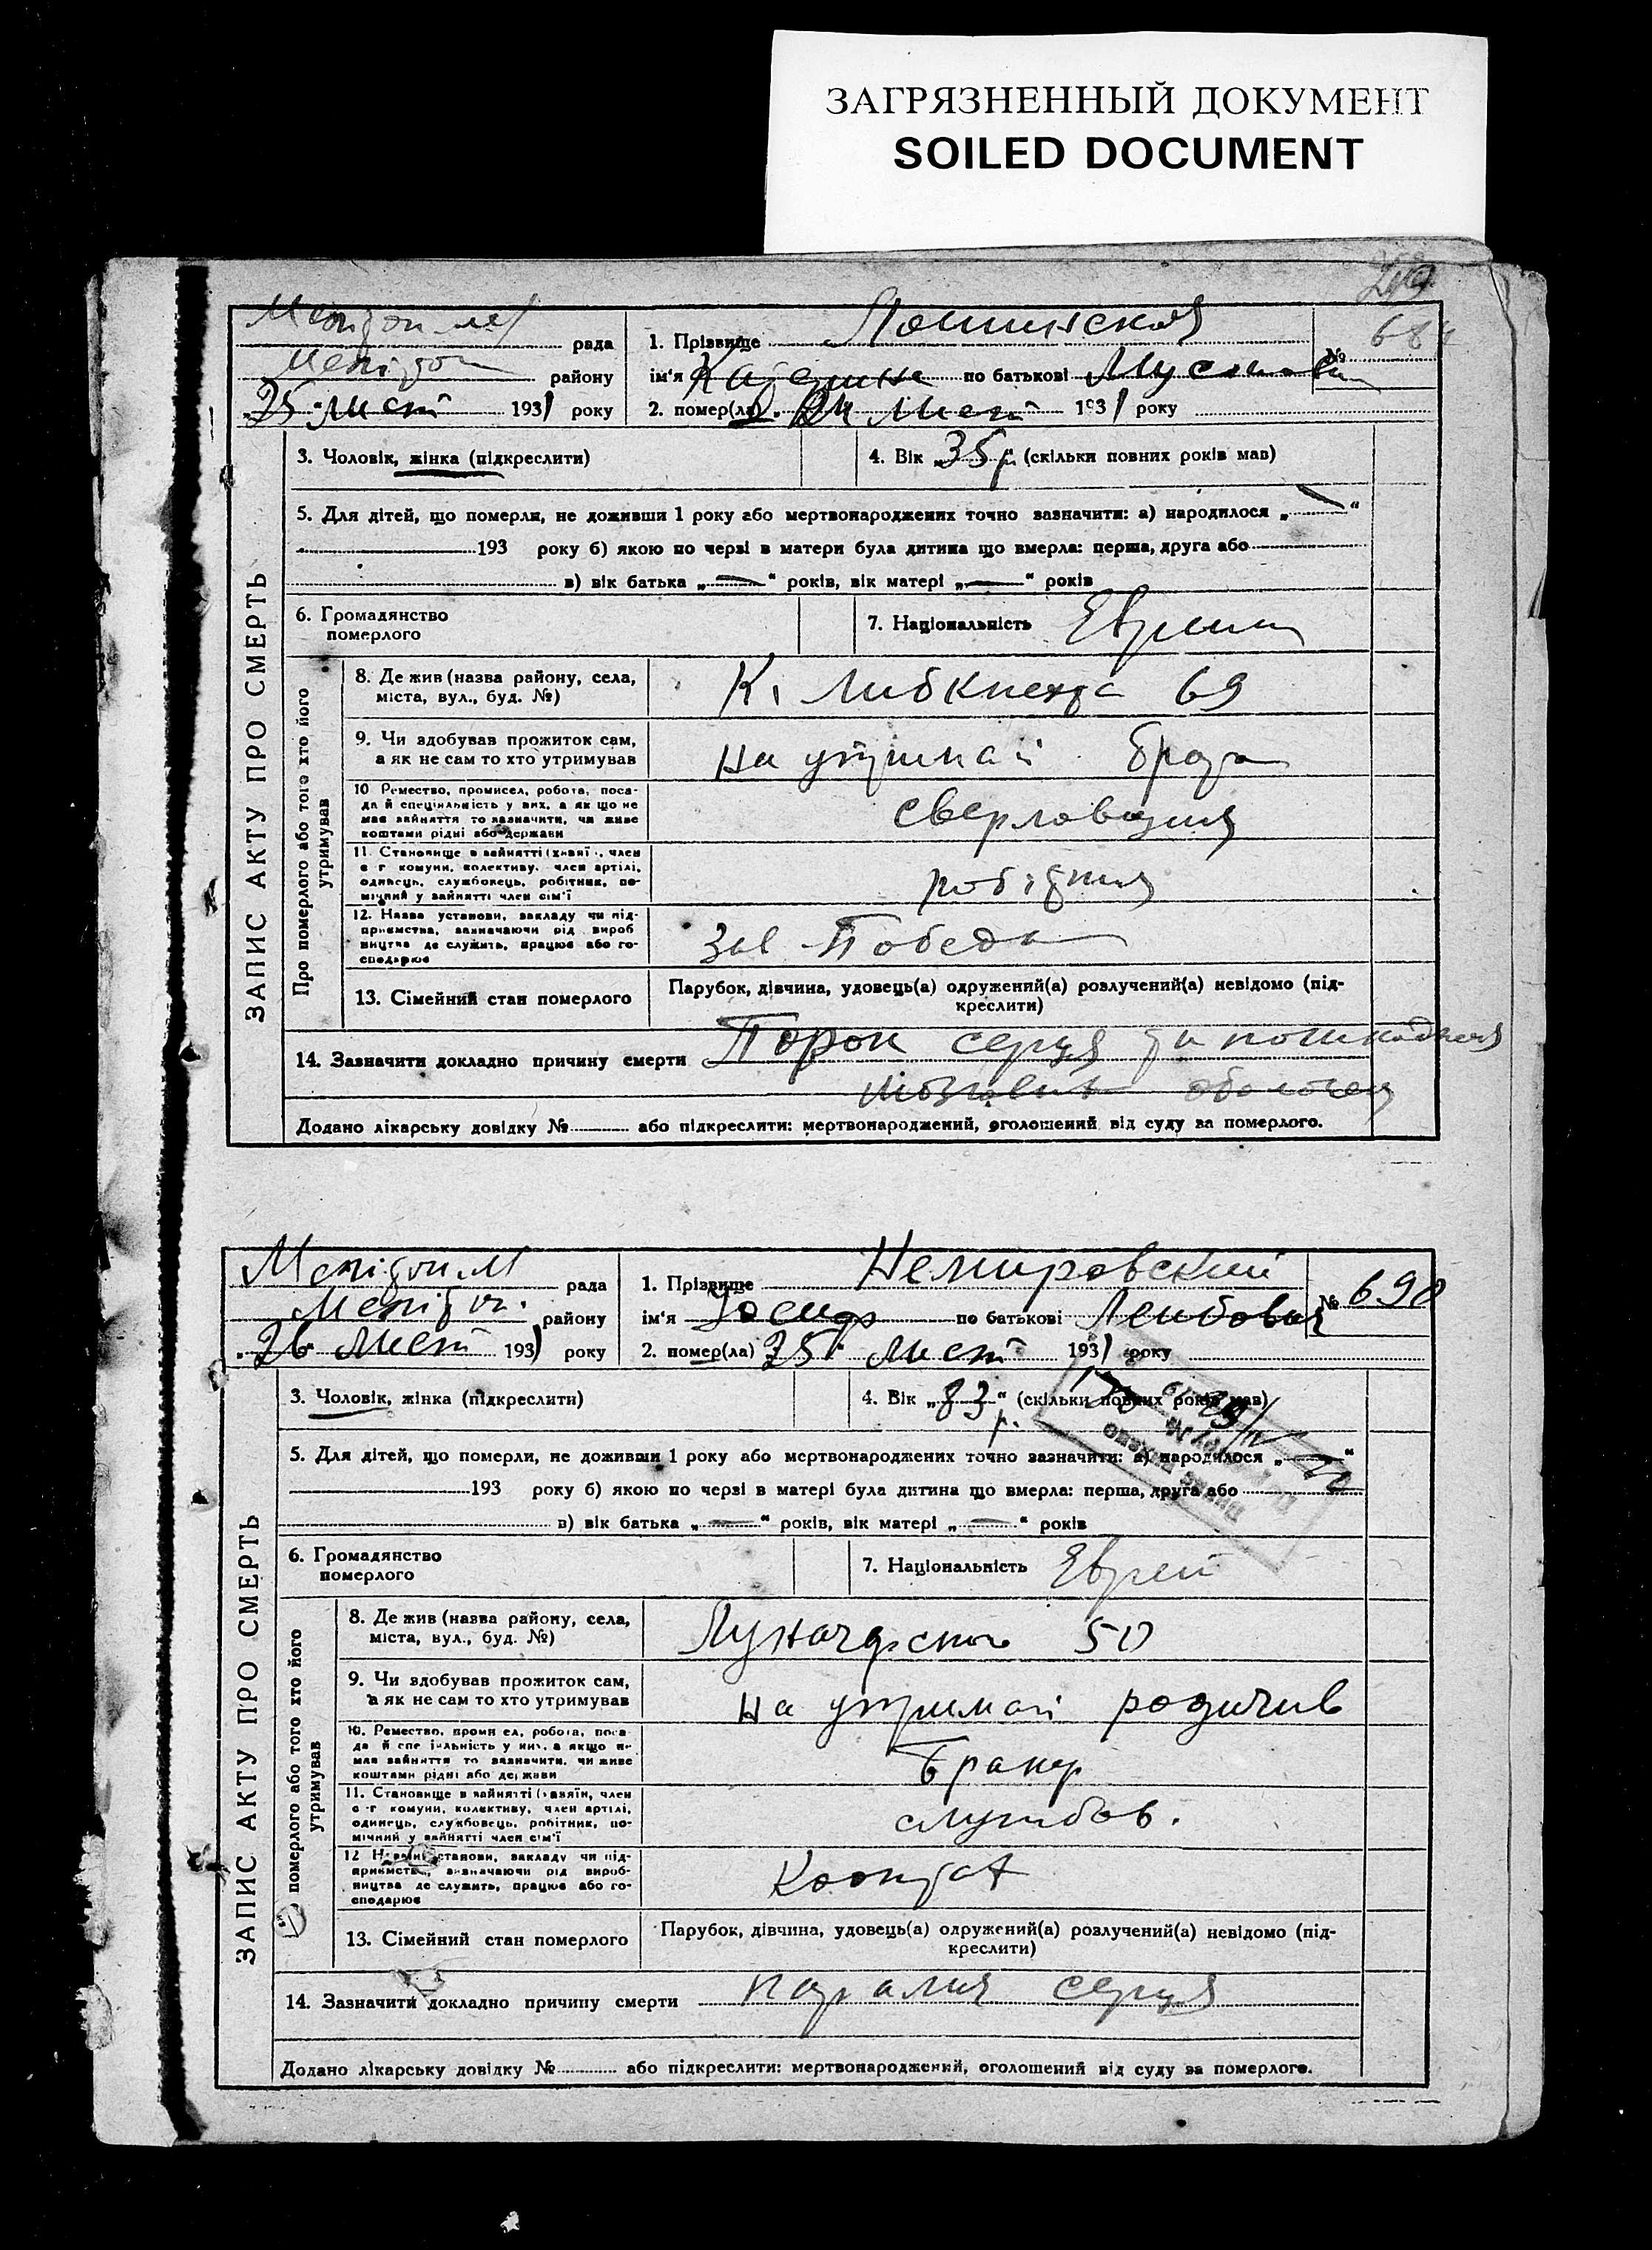 ЗАГРЯЗНЕННЫЙ ДОКУМЕНТ
SOILED DOCUMENT
рада
району
25 Лист 1931 року
1. Прізвище
ім'я по батькові
№
2. помер(ла) 24 Лист 1931 року
ЗАПИС АКТУ ПРО СМЕРТЬ
3. Чоловік, жінка (підкреслити)
4. Вік „35 р.“ (скільки повних років мав)
5. Для дітей, що померли, не доживши 1 року або мертвонароджених точно зазначити: а) народилося „ — “
193 року б) якою по черзі в матери була дитина що вмерла: перша, друга або
в) вік батька „ — “ років, вік матері „ — “ років
6. Громадянство
померлого
7. Національність Еврейка
Про померлого або того хто його
утримував
8. Де жив (назва району, села,
міста, вул., буд. №)
К. Либкнехта 69
9. Чи здобував прожиток сам,
а як не сам то хто утримував
На утриман брата
10 Ремество, промисел, робота, поса-
да й спеціяльність у них, а як що не
мав зайняття то зазначити, чи живе
коштами рідні або держави
сверловщик
11. Становище в зайнятті (хазяїн, член
с-г комуни, колективу, член артілі,
одинець, службовець, робітник, по-
мічний у зайнятті член сім'ї
робітник
12. Назва установи, закладу чи під-
приємства, зазначаючи рід вироб
ництва де служить, працює або го-
сподарює
Зав Победа
13. Сімейний стан померлого
Парубок, дівчина, удовець(а) одружений(а) розлучений(а) невідомо (під-
креслити)
14. Зазначити докладно причину смерти Порок серця та пошкодження
оболочек
Додано лікарську довідку № або підкреслити: мертвонароджений, оголошений від суду за померлого.
рада
району
26 Лист 1931 року
1. Прізвище Немировский
ім'я Йосиф по батькові Лейбович
№ 690
2. помер(ла) 25 Лист 1931 року
ЗАПИС АКТУ ПРО СМЕРТЬ
3. Чоловік, жінка (підкреслити)
4. Вік „83 р.“ (скільки повних років мав)
5. Для дітей, що померли, не доживши 1 року або мертвонароджених точно зазначити: а) народилося „ — “
193 року б) якою по черзі в матері була дитина що вмерла: перша, друга або
в) вік батька „ — “ років, вік матері „ — “ років
6. Громадянство
померлого
7. Національність Еврей
померлого або того хто його
утримував
8. Де жив (назва району, села,
міста, вул., буд. №)
Луначарского 50
9. Чи здобував прожиток сам,
а як не сам то хто утримував
На утриман родичів
10. Ремество, промисел, робота, поса-
да й спеціяльність у них, а якщо не
мав зайняття то зазначити, чи живе
коштами рідні або держави
Бракер
11. Становище в зайнятті (хазяїн, член
с-г комуни, колективу, член артілі,
одинець, службовець, робітник, по-
мічний у зайнятті член сім'ї
службов.
12 Назва установи, закладу чи під-
приємства, зазначаючи рід вироб-
ництва де служить, працює або го-
сподарює
13. Сімейний стан померлого
Парубок, дівчина, удовець(а) одружений(а) розлучений(а) невідомо (під-
креслити)
14. Зазначити докладно причину смерти параліч серця
Додано лікарську довідку № або підкреслити: мертвонароджений, оголошений від суду за померлого.